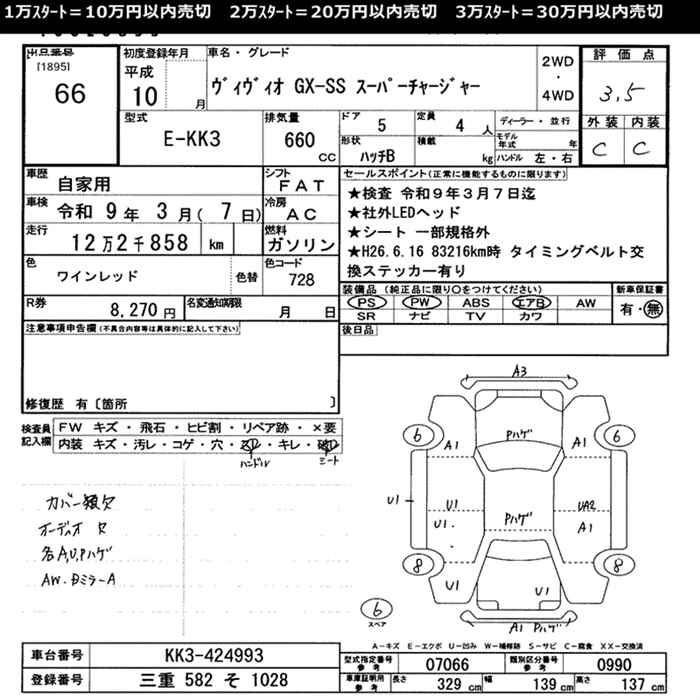 1万ｽﾀｰﾄ＝10万円以内売切　2万ｽﾀｰﾄ＝20万円以内売切　3万ｽﾀｰﾄ＝30万円以内売切
出品番号
[1895]
66
初度登録年月
平成
10 月
車名・グレード
ヴィヴィオ GX-SS スーパーチャージャー
2WD
・
4WD
評価点
3.5
外装 内装
C C
型式
E-KK3
排気量
660 cc
ドア 5
定員 4 人
形状 ハッチB
積載 kg
ディーラー・並行
モデル年式 年
ハンドル 左・右
車歴 自家用
シフト FAT
車検 令和 9年 3月( 7日)
冷房 AC
走行 12万2千858 km
燃料 ガソリン
色 ワインレッド 色替
色コード 728
R券 8,270 円
名変通知期限 月 日
セールスポイント(正常に機能するものに限ります)
★検査 令和９年３月７日迄
★社外LEDヘッド
★シート 一部規格外
★H26.6.16 83216km時 タイミングベルト交
換ステッカー有り
装備品 (純正品に限り○をつけてください)
PS PW ABS エアB AW
SR ナビ TV カワ
新車保証書
有・無
後日品
注意事項申告欄(不具合内容等は具体的に記入して下さい)
修復歴 有〔箇所 〕
検査員記入欄
FW キズ・飛石・ヒビ割・リペア跡・×要
内装 キズ・汚レ・コゲ・穴・スレ・キレ・破レ
ハンドル シート
カバー類欠
オーディオ欠
各A,U,Pハゲ
AW・DミラーA
A3
6 A1 Pハゲ A1 6
U1 U1 UA2
U1 Pハゲ A1
8 U1 U1 8
A1 Pハゲ
6
スペア
A－キズ E－エクボ U－凹ミ W－補修跡 S－サビ C－腐食 XX－交換済
車台番号 KK3-424993
登録番号 三重 582 そ 1028
型式指定番号 参考 07066
類別区分番号 参考 0990
車庫証明用 参考 長さ 329 cm 幅 139 cm 高さ 137 cm